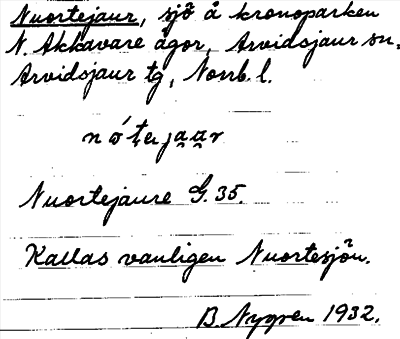 Nuortejaur, sjö å kronoparken
N. Akkavare ägor, Arvidsjaur sn,
Arvidsjaur tg, Norrb. l.
Nuortejaure G. 35.
Kallas vanligen Nuortesjön.
B. Nygren 1932.